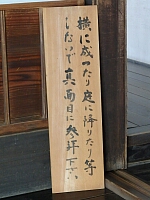 横に成ったり庭に降りたり等
しないで真面目に参拝下さい